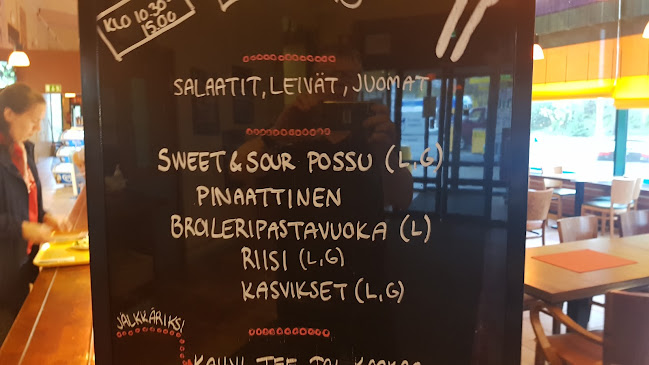 KLO 10.30-
15.00
SALAATIT, LEIVÄT, JUOMAT
SWEET & SOUR POSSU (L,G)
PINAATTINEN
BROILERIPASTAVUOKA (L)
RIISI (L,G)
KASVIKSET (L,G)
JÄLKKÄRIKSI
KAHVI, TEE TAI